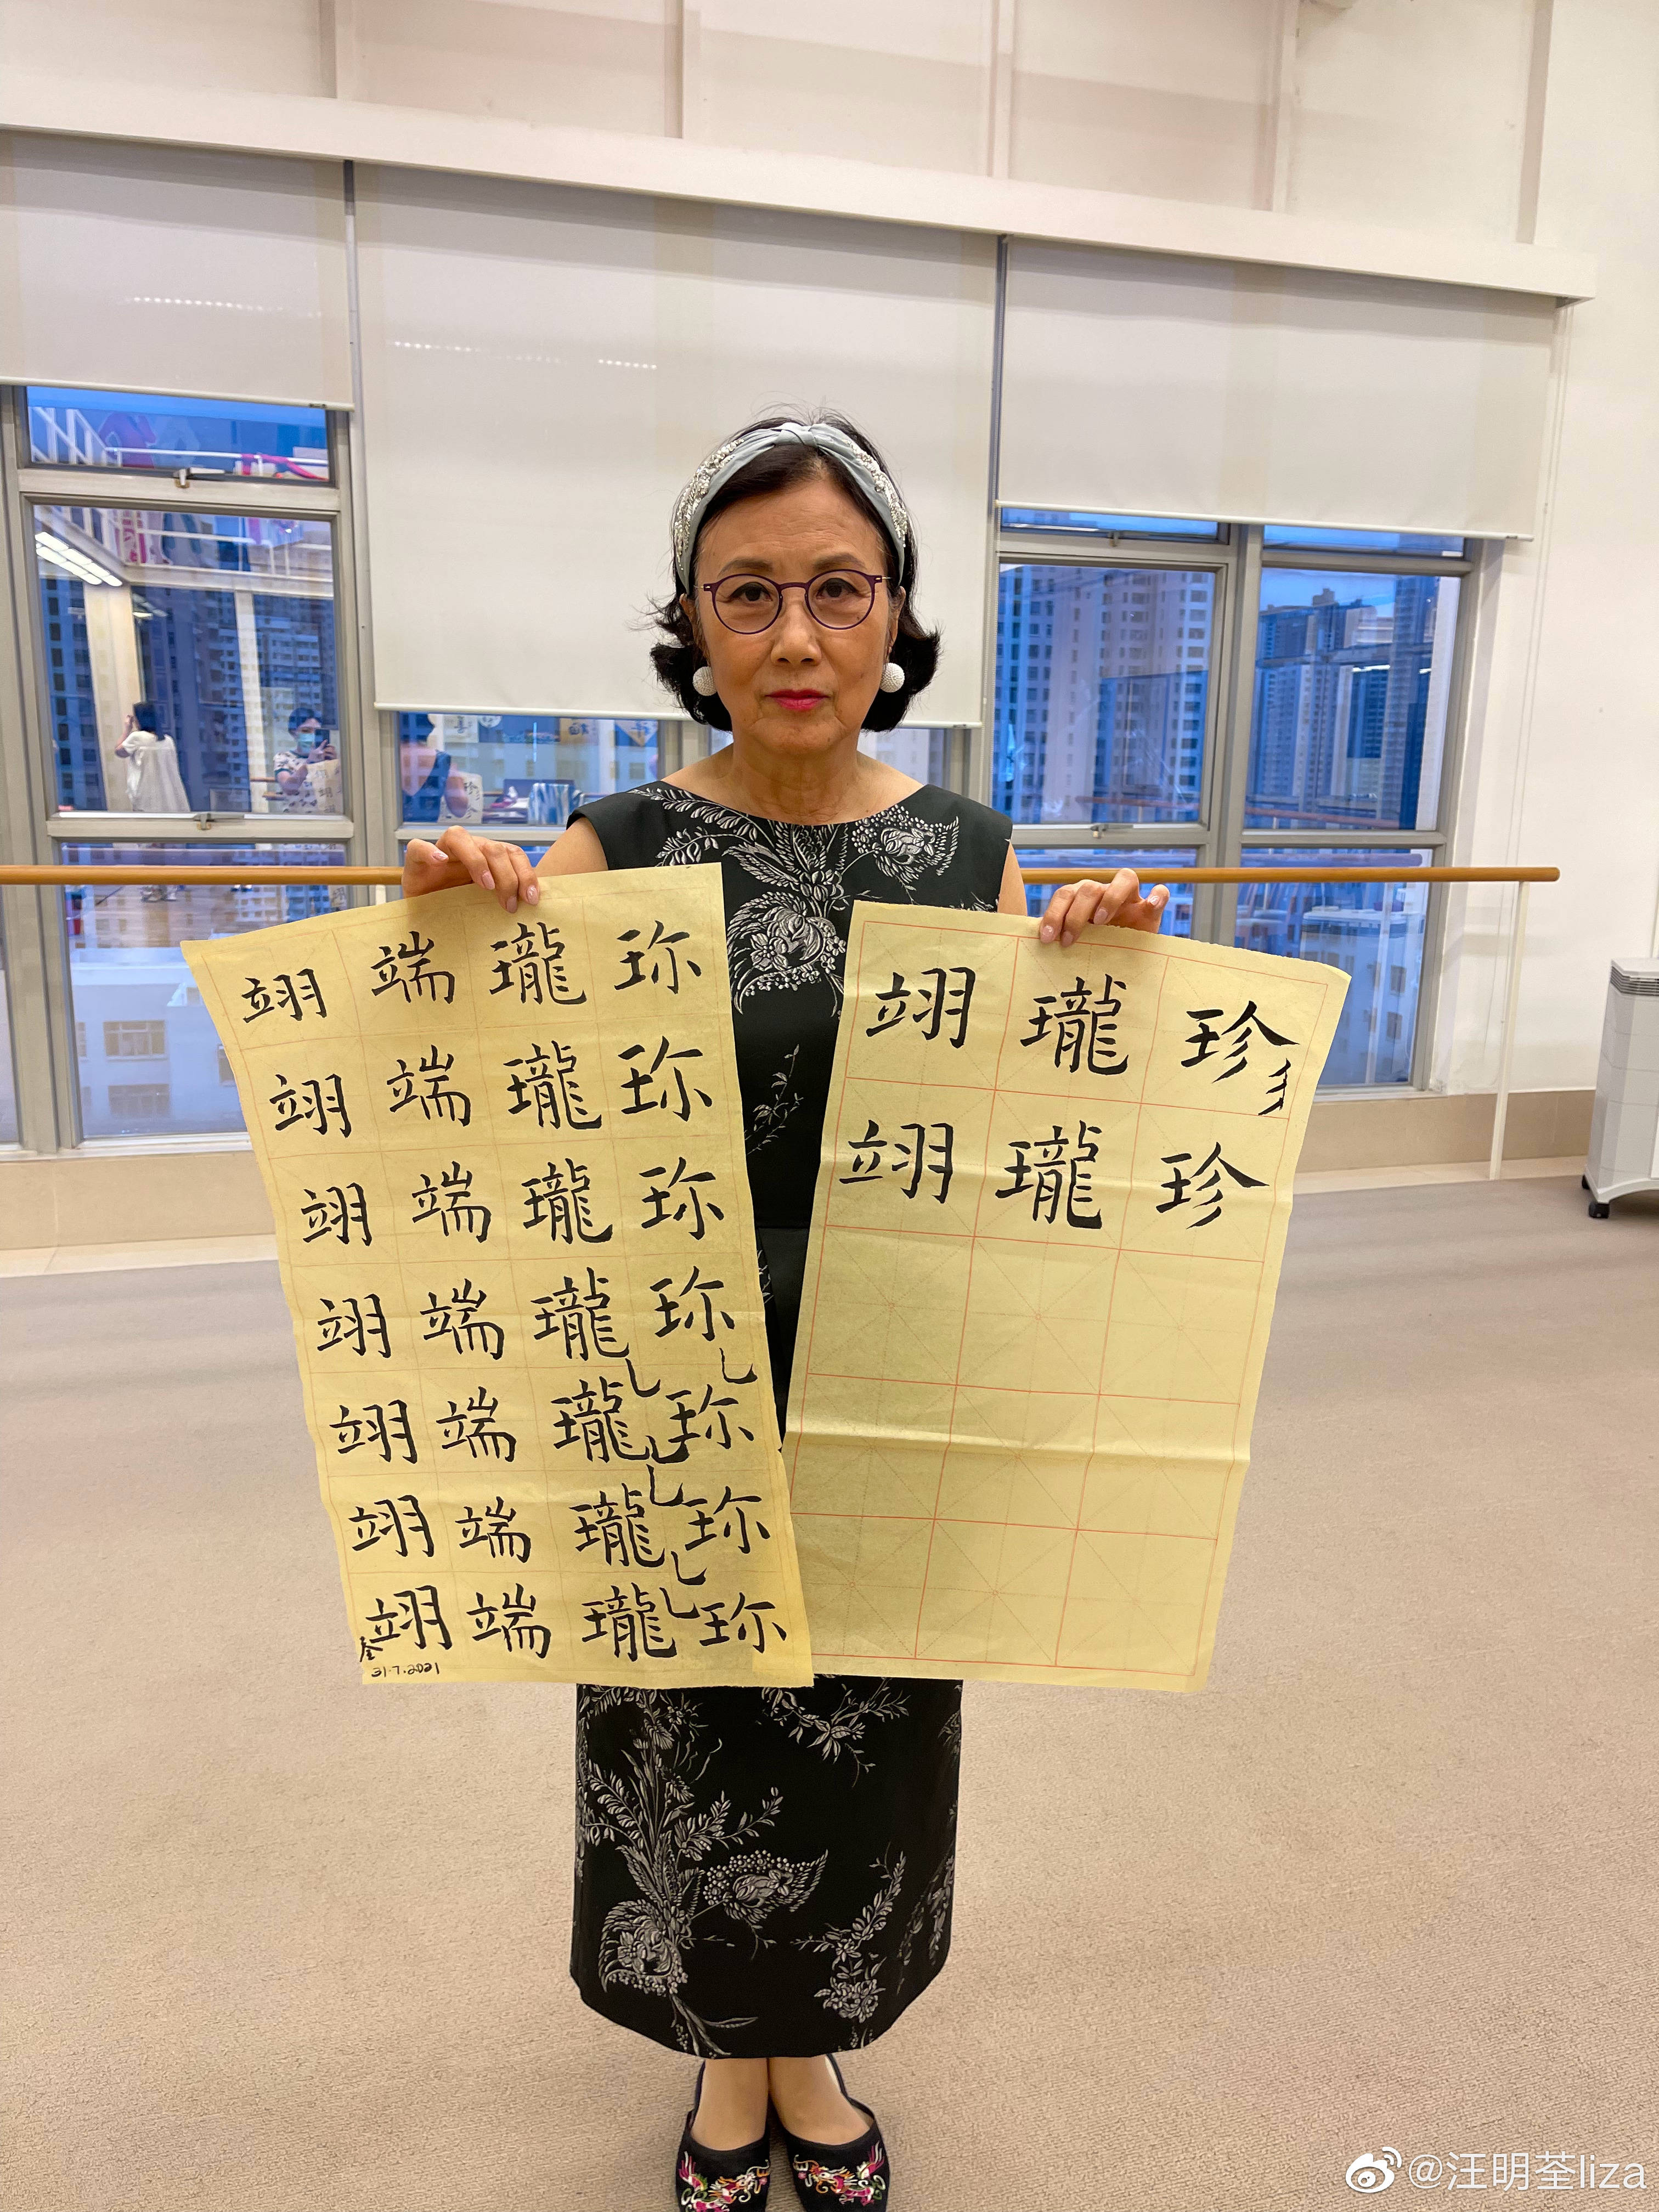 珎珎珎珎珎珎珎
瓏瓏瓏瓏瓏瓏瓏
端端端端端端端
翊翊翊翊翊翊翊
31.7.2021
珍珍
瓏瓏
翊翊
@汪明荃liza